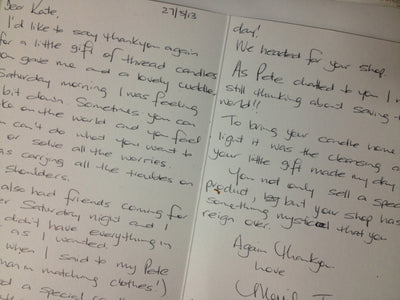 27/5/13
Dear Kate,
I'd like to say thankyou again
for a little gift of thread candles
you gave me and a lovely cuddle.
Saturday morning I was feeling
bit down. Sometimes you can
take on the world and you feel
can't do what you want to
or solve all the worries.
carrying all the troubles on
shoulders.
also had friends coming for
Saturday night and I
didn't have everything in
as I wanted.
when I said to my Pete
man in matching clothes!)
a special
day!
We headed for your shop.
As Pete chatted to you I
still thinking about saving
world!!
To bring your candle home
light it was the cleansing
your little gift made my day
You not only sell a
product, but your shop has
something mystical that you
reign over.
Again thankyou
love